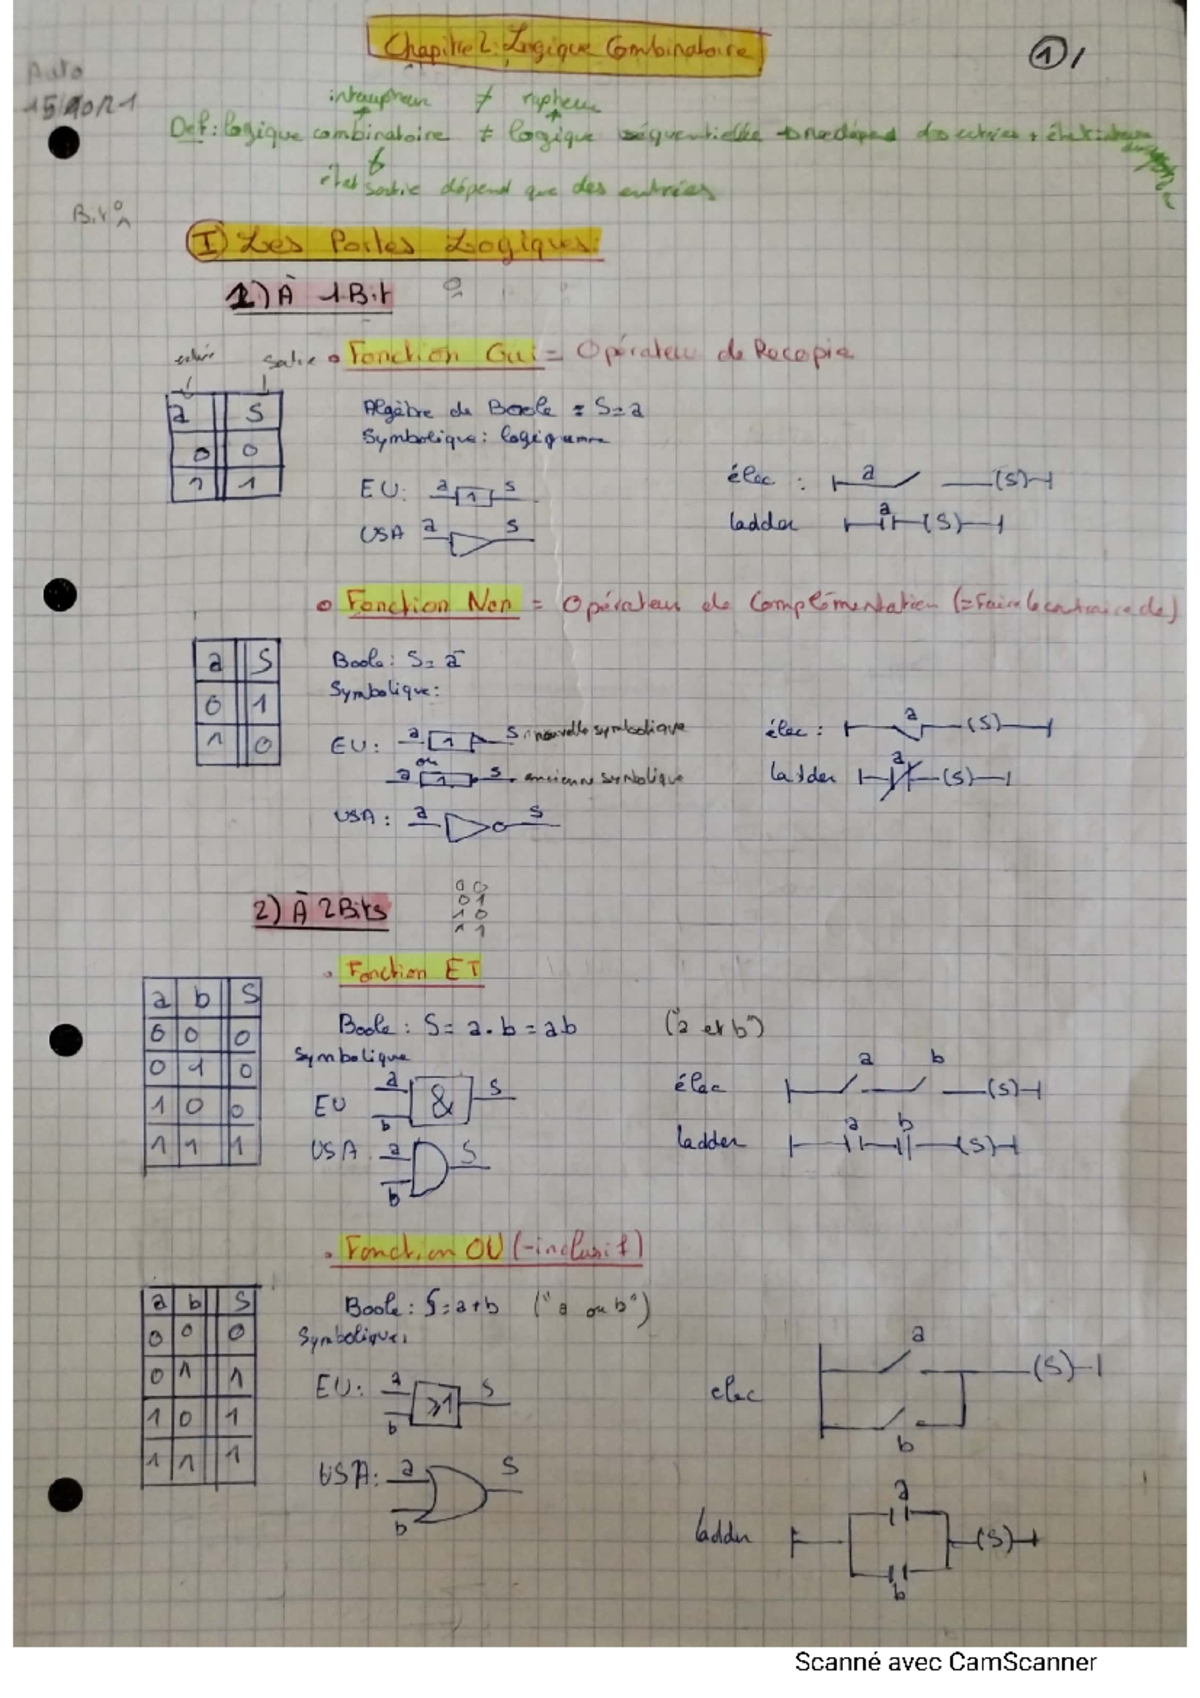 Chapitre 2: Logique Combinatoire
1/
Auto
15/10/21
interrupteur ≠ rupteur
Def: logique combinatoire ≠ logique séquentielle → dépend des entrées + état
état sortie dépend que des entrées
Bit: 0 1
I) Les Portes Logiques:
1) À 1 Bit
0
1
entrée sortie
• Fonction Oui = Opérateur de Recopie
a S
0 0
1 1
Algèbre de Boole : S=a
Symbolique: logigramme
EU: a 1 S
élec : a (S)
USA a S
ladder a (S)
• Fonction Non = Opérateur de Complémentation (= Faire le contraire de)
a S
0 1
1 0
Boole: S= ā
Symbolique:
EU: a 1 S : nouvelle symbolique
ou
a 1 S. ancienne symbolique
élec : a (S)
ladder a (S)
USA : a S
2) À 2 Bits
0 0
0 1
1 0
1 1
• Fonction ET
a b S
0 0 0
0 1 0
1 0 0
1 1 1
Boole : S= a.b = ab ("a et b")
Symbolique
EU a b & S
élec a b (S)
USA a b S
ladder a b (S)
• Fonction OU (-inclusif)
a b S
0 0 0
0 1 1
1 0 1
1 1 1
Boole: S=a+b ("a ou b")
Symbolique:
EU: a b ≥1 S
elec a b (S)
USA: a b S
ladder a b (S)
Scanné avec CamScanner